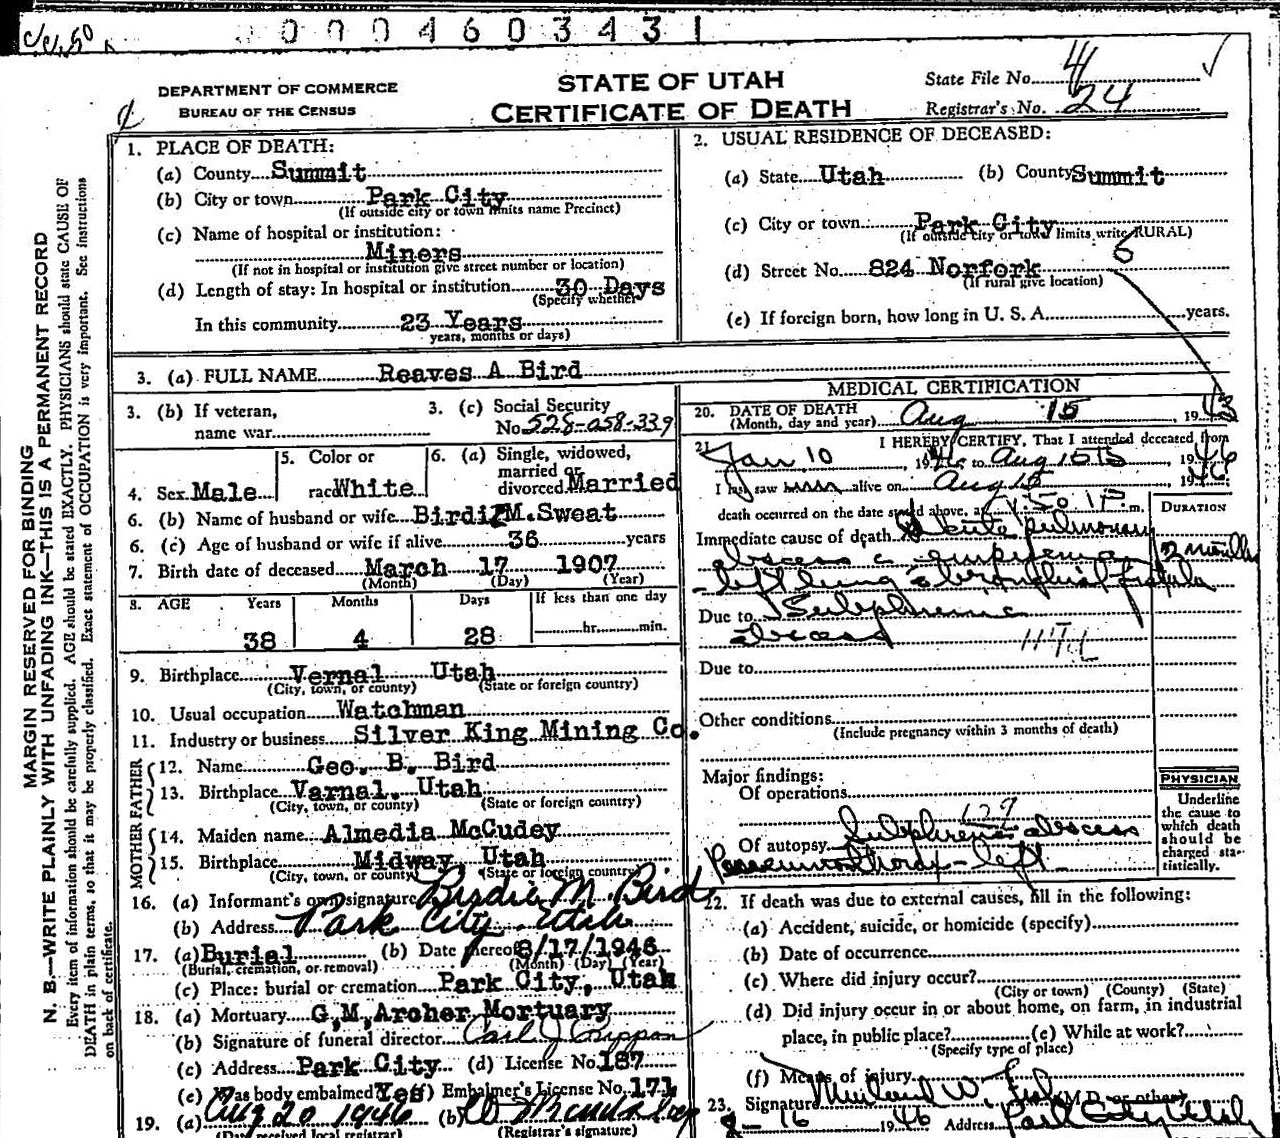 0 0 0 4 6 0 3 4 3 1
DEPARTMENT OF COMMERCE
BUREAU OF THE CENSUS
STATE OF UTAH
CERTIFICATE OF DEATH
State File No.
Registrar's No. 24
MARGIN RESERVED FOR BINDING
N. B.—WRITE PLAINLY WITH UNFADING INK—THIS IS A PERMANENT RECORD
Every item of information should be carefully supplied. AGE should be stated EXACTLY. PHYSICIANS should state CAUSE OF
DEATH in plain terms, so that it may be properly classified. Exact statement of OCCUPATION is very important. See instructions
on back of certificate.
1. PLACE OF DEATH:
(a) County Summit
(b) City or town Park City
(If outside city or town limits name Precinct)
(c) Name of hospital or institution:
Miners
(If not in hospital or institution give street number or location)
(d) Length of stay: In hospital or institution 30 Days
(Specify whether
In this community 23 Years
years, months or days)
2. USUAL RESIDENCE OF DECEASED:
(a) State Utah (b) County Summit
(c) City or town Park City
(If outside city or town limits write RURAL)
6
(d) Street No. 824 Norfork
(If rural give location)
(e) If foreign born, how long in U. S. A. years.
3. (a) FULL NAME Reaves A Bird
3. (b) If veteran,
name war
3. (c) Social Security
No 528-058-339
4. Sex Male
5. Color or
race White
6. (a) Single, widowed,
married or
divorced Married
6. (b) Name of husband or wife Birdie M. Sweat
6. (c) Age of husband or wife if alive 36 years
7. Birth date of deceased March 17 1907
(Month) (Day) (Year)
8. AGE Years Months Days If less than one day
38 4 28 hr. min.
9. Birthplace Vernal Utah
(City, town, or county) (State or foreign country)
10. Usual occupation Watchman
11. Industry or business Silver King Mining Co.
FATHER
12. Name Geo. B. Bird
13. Birthplace Varnal. Utah
(City, town, or county) (State or foreign country)
MOTHER
14. Maiden name Almedia McCudey
15. Birthplace Midway, Utah
(City, town, or county) (State or foreign country)
16. (a) Informant's own signature Birdie M. Bird
(b) Address Park City, Utah
17. (a) Burial (b) Date thereof 8/17/1946
(Burial, cremation, or removal) (Month) (Day) (Year)
(c) Place: burial or cremation Park City, Utah
18. (a) Mortuary G.M. Archer Mortuary
(b) Signature of funeral director Carl J
(c) Address Park City (d) License No. 187
(e) Was body embalmed Yes (f) Embalmer's License No. 171
19. (a) Aug 20 1946 (b)
(Date received local registrar) (Registrar's signature)
MEDICAL CERTIFICATION
20. DATE OF DEATH
(Month, day and year) Aug 15, 19
21. I HEREBY CERTIFY, That I attended deceased from
Jan 10, 1946 to Aug 15, 1946
I last saw alive on Aug 15 1946
death occurred on the date stated above, at 1:50 P. m.
DURATION
Immediate cause of death Acute pulmonary
abscess c empyema
left lung c bronchial fistula
2 months
Due to Subphrenic
abscess
Due to
Other conditions
(Include pregnancy within 3 months of death)
Major findings:
Of operations
129
Of autopsy Subphrenic abscess
left
PHYSICIAN
Underline
the cause to
which death
should be
charged sta-
tistically.
22. If death was due to external causes, fill in the following:
(a) Accident, suicide, or homicide (specify)
(b) Date of occurrence
(c) Where did injury occur?
(City or town) (County) (State)
(d) Did injury occur in or about home, on farm, in industrial
place, in public place? (e) While at work?
(Specify type of place)
(f) Means of injury
23. Signature W. M.D. or other)
8-16 1946 Address Park City Utah